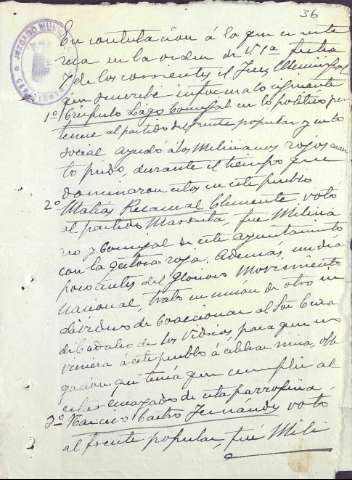 36
En contestación á lo que se inte
resa en la orden de V. S. fecha
7 de los corrientes el Juez Municipal
que suscribe informa lo siguiente
1º Crispulo Lago Comesal en lo político per
tenece al partido del frente popular y en lo
social ayudó á los Milicianos rojos cuan
to pudo, durante el tiempo que
dominaron estos en este pueblo
2º Matias Recamal Clemente votó
al partido Marxista, fué Milicia
no y Concejal de este ayuntamiento
con la gestora roja. Además, un dia
poco antes del Glorioso Movimiento
Nacional, trató en unión de otro in
dividuo de coaccionar al Sr Cura
de Cadalso de los Vidrios, para que no
viniera á este pueblo á celebrar misa, obli
gación que tenía que cumplir al
estar encargado de esta parroquia.
3º Narciso Castro Fernández votó
al frente popular, fué Mili